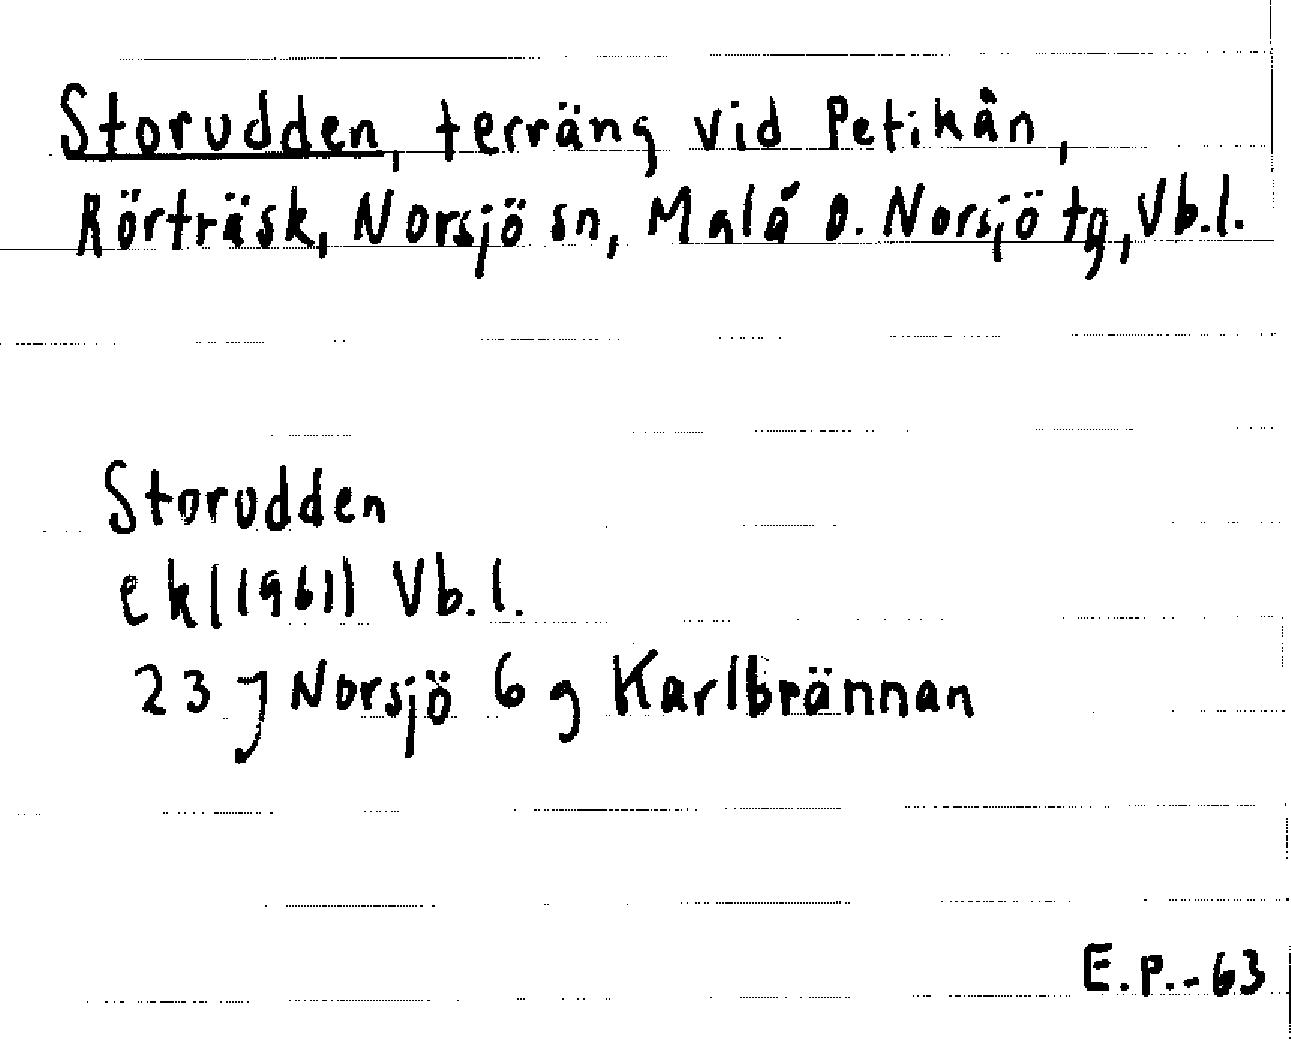 Storudden, terräng vid Petikån,
Rörträsk, Norsjö sn, Malå o. Norsjö tg, Vb.l.
Storudden
ek (1961) Vb.l.
23 J Norsjö 6 g Karlbrännan
E.P.-63